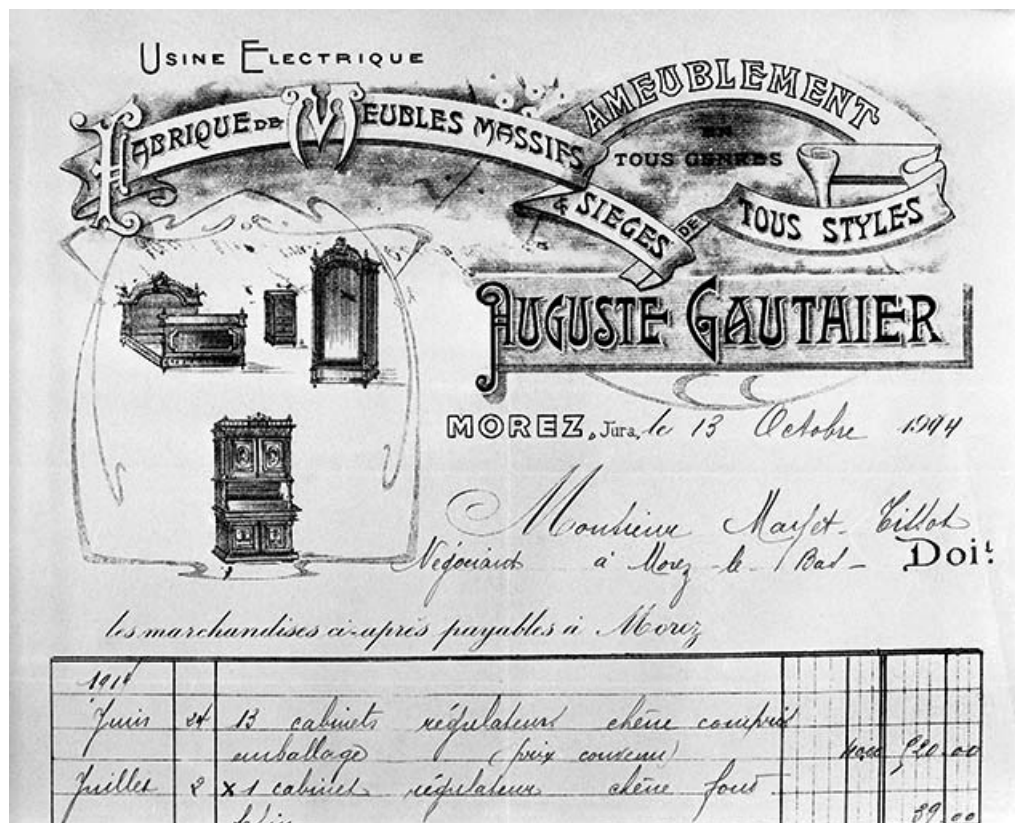 USINE ELECTRIQUE
FABRIQUE DE MEUBLES MASSIFS
AMEUBLEMENT
EN
TOUS GENRES
& SIEGES DE TOUS STYLES
AUGUSTE GAUTHIER
MOREZ, Jura, le 13 Octobre 1914
Monsieur
Négociant à Morez-le-Bas - Doit
les marchandises ci-après payables à Morez
1914
Juin 24 13 cabinets régulateurs chêne compris
emballage (prix convenu) 40.00 520.00
Juillet 2 x 1 cabinet régulateur chêne
39.00